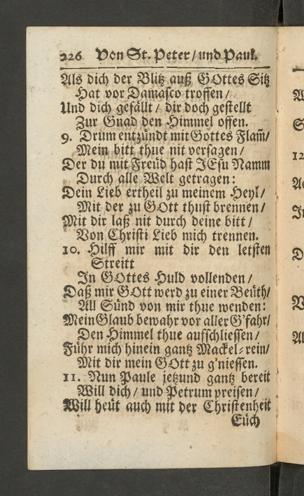 226 Von St. Peter / und Paul.
Als dich der Blitz auß GOttes Sitz
Hat vor Damasco troffen /
Und dich gefällt / dir doch gestellt
Zur Gnad den Himmel offen.
9. Drum entzündt mit Gottes Flam̃ /
Mein bitt thue nit versagen /
Der du mit Freüd hast JEsu Namm
Durch alle Welt getragen:
Dein Lieb ertheil zu meinem Heyl /
Mit der zu GOtt thust brennen /
Mit dir laß nit durch deine bitt /
Von Christi Lieb mich trennen.
10. Hilff mir mit dir den letsten
Streitt
In GOttes Huld vollenden /
Daß mir GOtt werd zu einer Beüth /
All Sünd von mir thue wenden:
Mein Glaub bewahr vor aller G'fahr /
Den Himmel thue auffschliessen /
Führ mich hinein gantz Mackel-rein /
Mit dir mein GOtt zu g'niessen.
11. Nun Paule jetzund gantz bereit
Will dich / und Petrum preisen /
Will heüt auch mit der Christenheit
Euch